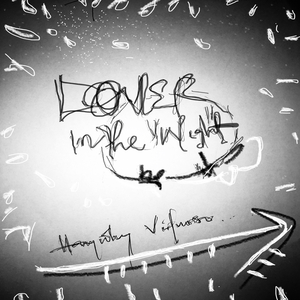 LOVER
In the Night
by
Virtuoso...